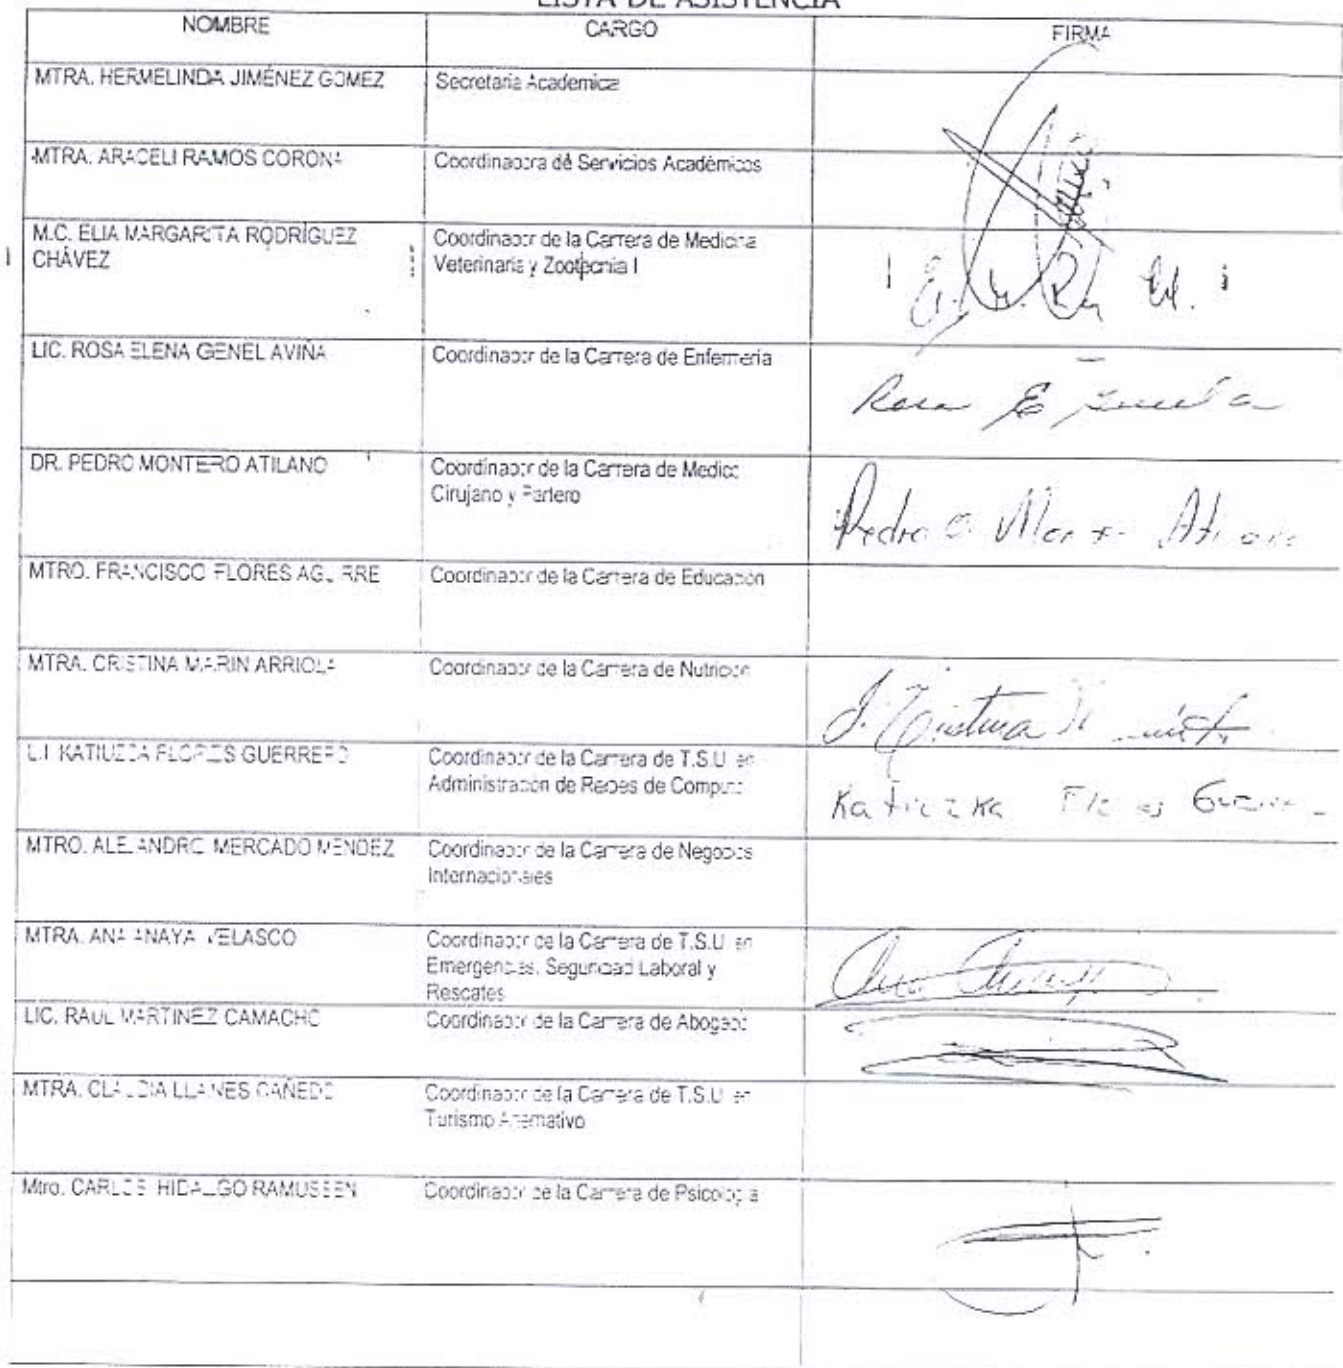 LISTA DE ASISTENCIA
NOMBRE CARGO FIRMA
MTRA. HERMELINDA JIMÉNEZ GOMEZ Secretaria Academica
MTRA. ARACELI RAMOS CORONA Coordinadora de Servicios Académicos
M.C. ELIA MARGARITA RODRÍGUEZ CHÁVEZ Coordinador de la Carrera de Medicina
Veterinaria y Zootecnia I
LIC. ROSA ELENA GENEL AVIÑA Coordinador de la Carrera de Enfermería
Rosa E
DR. PEDRO MONTERO ATILANO Coordinador de la Carrera de Medico
Cirujano y Partero
Pedro
MTRO. FRANCISCO FLORES AGUIRRE Coordinador de la Carrera de Educación
MTRA. CRISTINA MARIN ARRIOLA Coordinador de la Carrera de Nutrición
L.I. KATIUZCA FLORES GUERRERO Coordinador de la Carrera de T.S.U. en
Administración de Redes de Computo
Katiuzka Flores
MTRO. ALEJANDRO MERCADO MENDEZ Coordinador de la Carrera de Negocios
Internacionales
MTRA. ANA ANAYA VELASCO Coordinador de la Carrera de T.S.U. en
Emergencias, Seguridad Laboral y
Rescates
LIC. RAUL MARTINEZ CAMACHO Coordinador de la Carrera de Abogado
MTRA. CLAUDIA LLANES CAÑEDO Coordinador de la Carrera de T.S.U. en
Turismo Alternativo
Mtro. CARLOS HIDALGO RAMUSSEN Coordinador de la Carrera de Psicologia